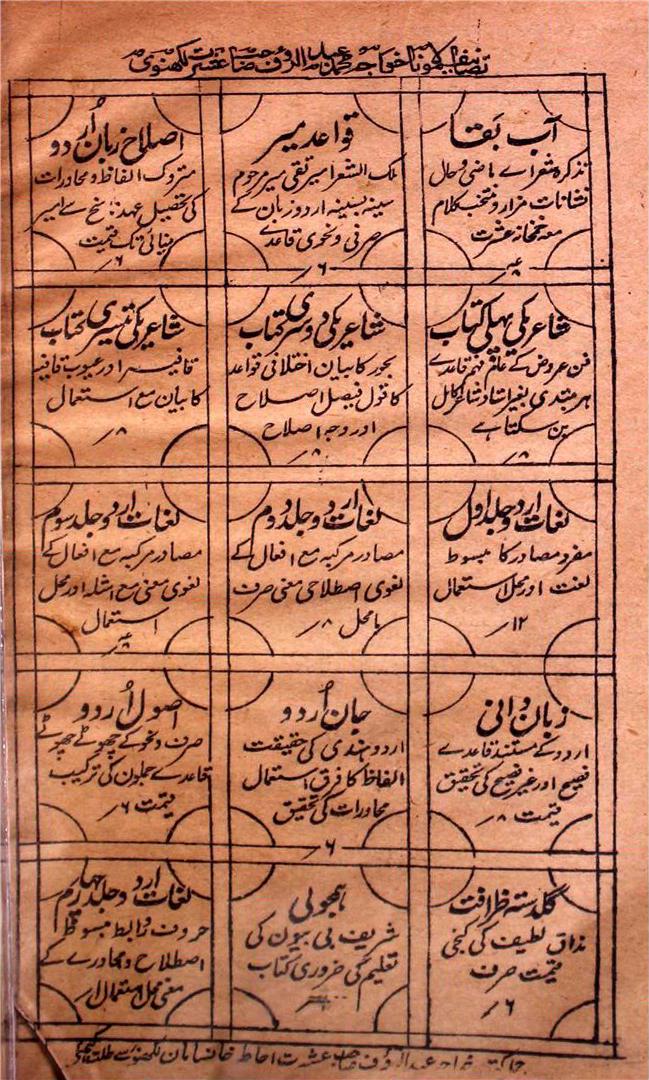 تصانیف مولانا خواجہ محمد عبدالرؤف صاحب عشرت لکھنوی
آب بقا
تذکرہ شعراے ماضی و حال
نشانات مزار و منتخب کلام
معہ خمخانہ عشرت
قواعد میر
ملک الشعرا میر تقی میر مرحوم
سینہ بسینہ اردو زبان کے
صرفی و نحوی قاعدے
۶؍
اصلاح زبان اُردو
متروک الفاظ و محاورات
کی تفصیل عہد ناسخ سے امیر
مینائی تک قیمت
۶؍
شاعری کی پہلی کتاب
فن عروض کے عام فہم قاعدے
ہر مبتدی بغیر استاد شاعر کامل
بن سکتا ہے
۸؍
شاعری کی دوسری کتاب
بحور کا بیان اختلافی قواعد
کا قول فیصل اصلاح
اور وجہ اصلاح
۸؍
شاعری کی تیسری کتاب
قافیہ اور عیوب قافیہ
کا بیان مع استعمال
۸؍
لغات اردو جلد اول
مفرد مصادر کا مبسوط
لغت اور محل استعمال
۱۲؍
لغات اردو جلد دوم
مصادر مرکبہ مع افعال کے
لغوی اصطلاحی معنی صرف
بامحل ۸؍
لغات اردو جلد سوم
مصادر مرکبہ مع افعال کے
لغوی معنی مع امثلہ اور محل
استعمال
زبان دانی
اردو کے مستند قاعدے
فصیح اور غیر فصیح کی تحقیق
قیمت ۸؍
جان اُردو
اردو ہندی کی حقیقت
الفاظ کا فرق استعمال
محاورات کی تحقیق
۶؍
اصول اُردو
صرف و نحو کے چھوٹے چھوٹے
قاعدے جملوں کی ترکیب
قیمت ۶؍
گلدستہ ظرافت
مذاق لطیف کی کنجی
قیمت صرف
۶؍
ہمجولی
شریف بی بیون کی
تعلیم کی ضروری کتاب
لغات اردو جلد چہارم
حروف و روابط مبسوط
اصطلاح و محاورے کے
معنی محل استعمال
خواجہ عبدالرؤف صاحب عشرت احاطہ خانسامان لکھنؤ سے طلب کیجئے